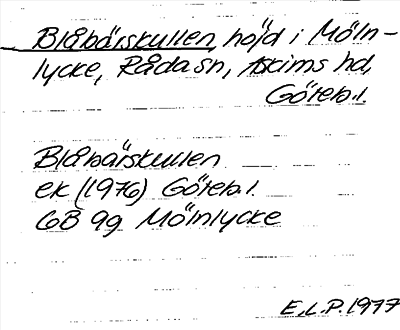 Blåbärskullen, höjd i Möln-
lycke, Råda sn, Askims hd,
Göteb.l.
Blåbärskullen
ek (1976) Göteb.l.
6B 9g Mölnlycke
E.L.P. 1977